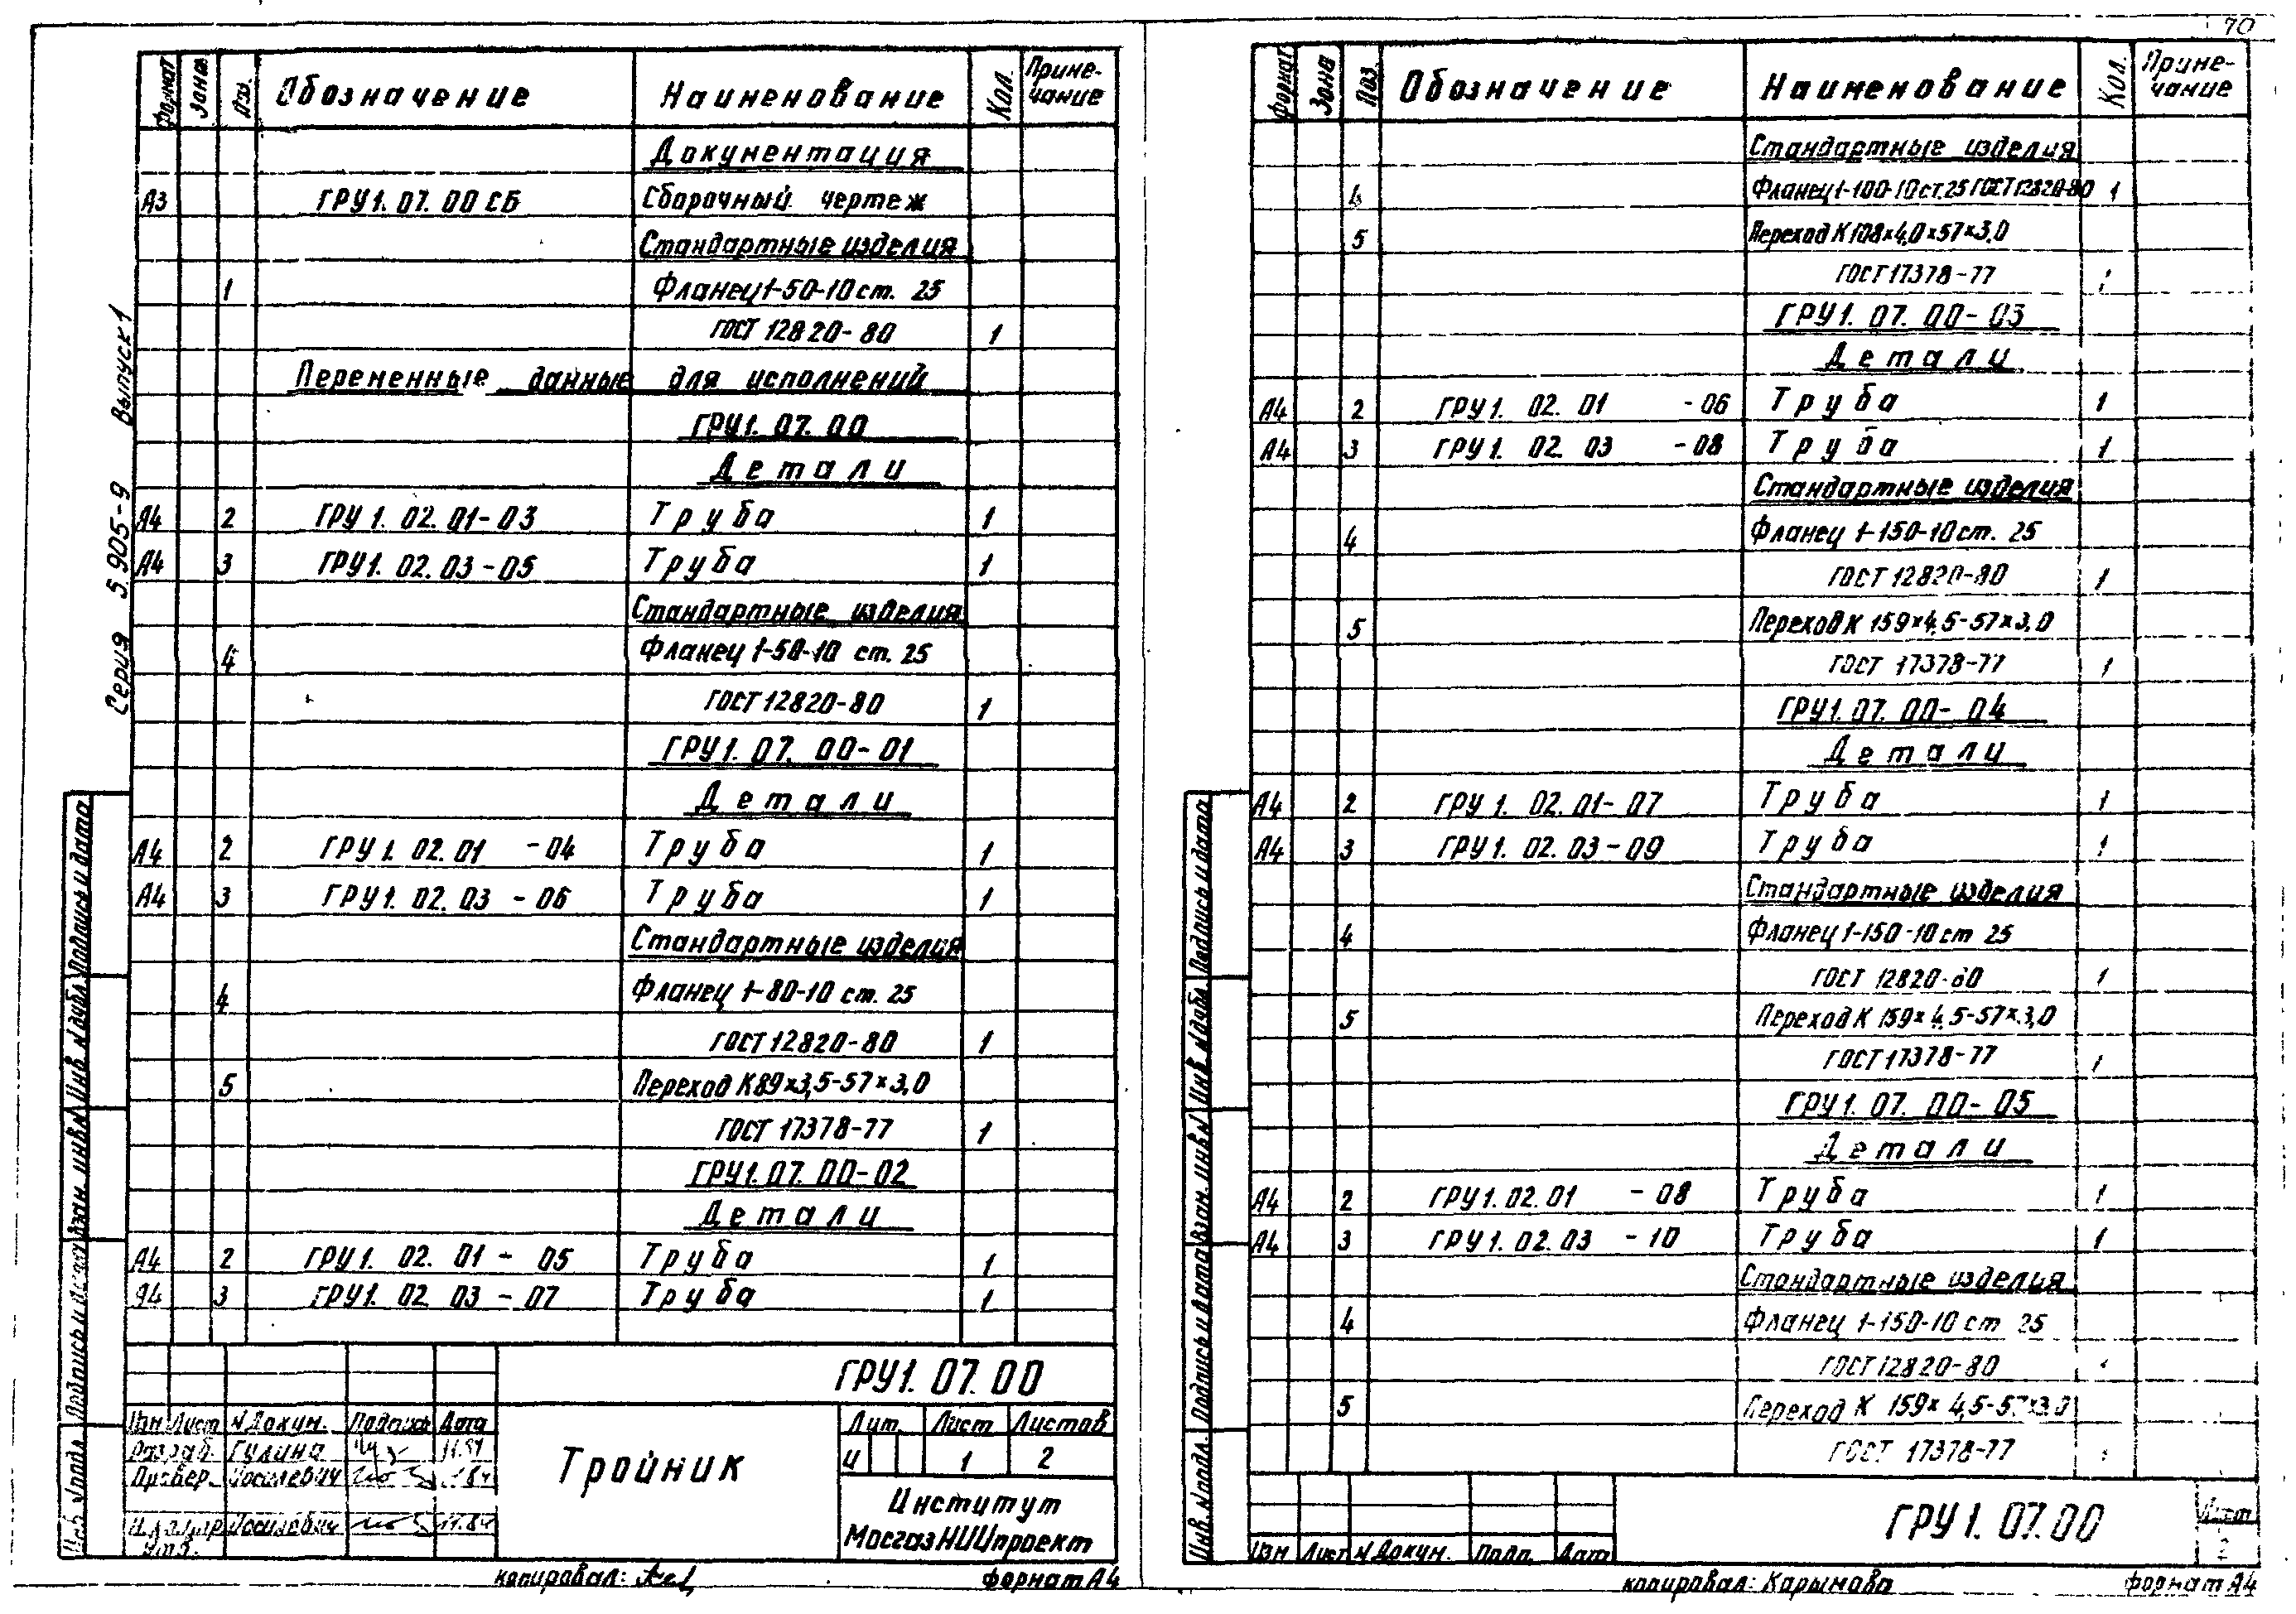 70
Серия 5.905-9 Выпуск 1
Формат Зона Поз. Обозначение Наименование Кол. Приме-чание
Документация
А3 ГРУ1.07.00 СБ Сборочный чертеж
Стандартные изделия
1 Фланец 1-50-10 ст. 25
ГОСТ 12820-80 1
Переменные данные для исполнений
ГРУ1.07.00
Детали
А4 2 ГРУ1.02.01-03 Труба 1
А4 3 ГРУ1.02.03-05 Труба 1
Стандартные изделия
4 Фланец 1-50-10 ст. 25
ГОСТ 12820-80 1
ГРУ1.07.00-01
Детали
А4 2 ГРУ1.02.01 -04 Труба 1
А4 3 ГРУ1.02.03 -06 Труба 1
Стандартные изделия
4 Фланец 1-80-10 ст. 25
ГОСТ 12820-80 1
5 Переход К89×3,5-57×3,0
ГОСТ 17378-77 1
ГРУ1.07.00-02
Детали
А4 2 ГРУ1.02.01 - 05 Труба 1
А4 3 ГРУ1.02.03 - 07 Труба 1
Подпись и дата
Инв. № дубл.
Взам. инв. №
Подпись и дата
Инв. № подл.
ГРУ1.07.00
Изм Лист № Докум. Подпись Дата
Разраб. Гулина 11.84
Провер. Иоселевич
Н.контр Иоселевич 11.84
Утв.
Тройник
Лит. Лист Листов
И 1 2
Институт
МосгазНИИпроект
копировал:
формат А4
Формат Зона Поз. Обозначение Наименование Кол. Приме-чание
Стандартные изделия
4 Фланец 1-100-10 ст. 25 ГОСТ 12820-80 1
5 Переход К108×4,0×57×3,0
ГОСТ 17378-77 1
ГРУ1.07.00-03
Детали
А4 2 ГРУ1.02.01 -06 Труба 1
А4 3 ГРУ1.02.03 -08 Труба 1
Стандартные изделия
4 Фланец 1-150-10 ст. 25
ГОСТ 12820-80 1
5 Переход К 159×4,5-57×3,0
ГОСТ 17378-77 1
ГРУ1.07.00-04
Детали
А4 2 ГРУ1.02.01-07 Труба 1
А4 3 ГРУ1.02.03-09 Труба 1
Стандартные изделия
4 Фланец 1-150-10 ст 25
ГОСТ 12820-80 1
5 Переход К 159×4,5-57×3,0
ГОСТ 17378-77 1
ГРУ1.07.00-05
Детали
А4 2 ГРУ1.02.01 - 08 Труба 1
А4 3 ГРУ1.02.03 - 10 Труба 1
Стандартные изделия
4 Фланец 1-150-10 ст 25
ГОСТ 12820-80 1
5 Переход К 159×4,5-57×3,0
ГОСТ 17378-77 1
Подпись и дата
Инв. № дубл.
Взам. инв. №
Подпись и дата
Инв. № подл.
Изм Лист № Докум. Подп. Дата
ГРУ1.07.00
Лист
2
копировал: Карымова
формат А4